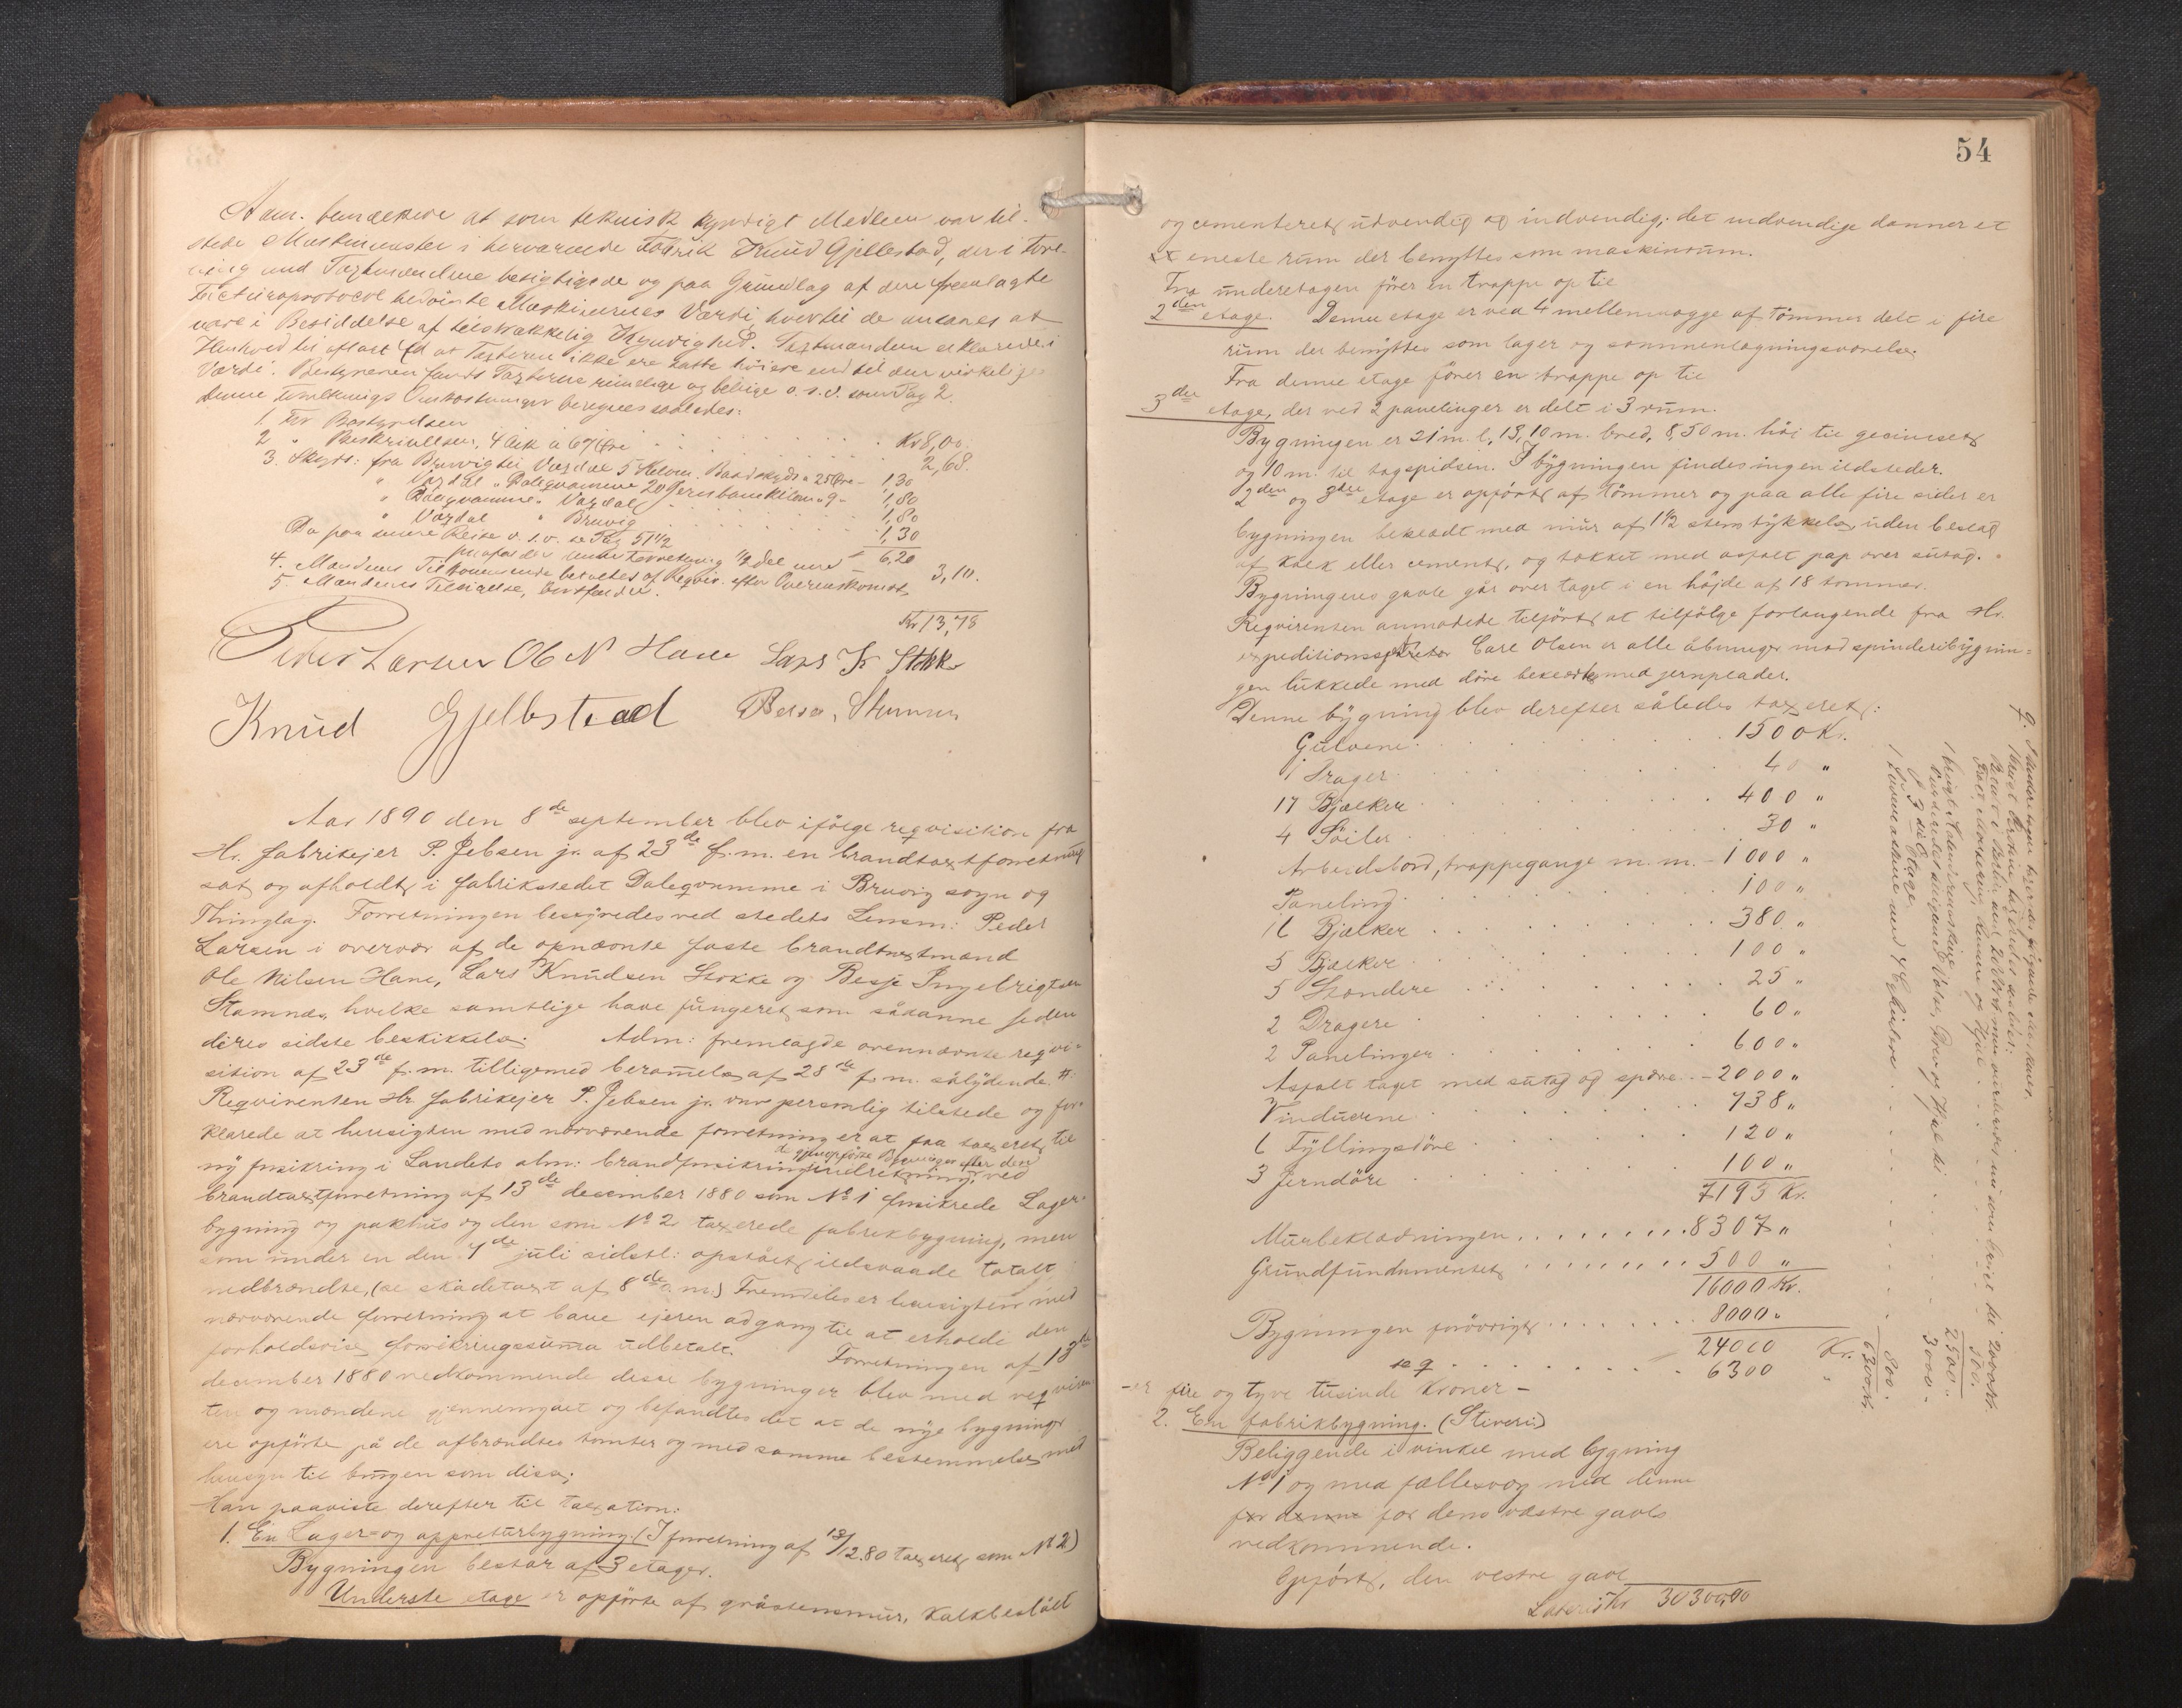 Adm. bemærkede at som teknisk kyndigt Medlem var til-
stede Maskinmester i herværende Fabrik Knud Gjellestad, der i Fore-
ning med Taxtmændene besigtigede og paa Grundlag af den fremlagte
Facturaprotocol bedømte Maskinernes Værdi, hvortil de ansaaes at
være i Besiddelse af tilstrækkelig Kyndighed. Taxtmændene erklærede i
Henhold til aflagt Ed at Taxterne ikke ere satte høiere end til den virkelige
Værdi. Bestyreren fandt Taxterne rimelige og billige o. s. v. som Pag 2.
Denne Forretnings Omkostninger beregnes saaledes:
1. For Bestyrelsen . . . Kr 8,00.
2 " Beskrivelsen, 4 Ark à 67 Øre . . . 2,68.
3. Skyds: fra Bruvig til Vaxdal 5 Kilom. Baadskyds a 25 Øre - 1,30
" Vaxdal " Daleqvamme 20 Jernbanekilom. " 9 - 1,80
" Daleqvamme " Vaxdal . . . 1,80
" Vaxdal " Bruvig . . . 1,30
Da paa samme Reise o. s. v. se Pag 51 1/2 6,20
paafølgende Forretning 1/2 del 3,10.
4. Mændenes Tilkommende betales af Reqvir. efter Overenskomst
5. Mændenes Tilsigelse,
Kr 13,78
Peder Larsen Ole N Hane Lars K. Stokke
Knud Gjellestad Besse. Stamnes
Aar 1890 den 8de september blev ifölge reqvisition fra
Hr. fabrikejer P. Jebsen jr. af 23de f. m. en brandtaxtforretning
sat og afholdt i fabrikstedet Daleqvamme i Bruvig sogn og
Thinglag. Forretningen bestyredes ved stedets Lensm: Peder
Larsen i overvær af de opnævnte faste brandtaxtmænd
Ole Nilsen Hane, Lars Knudsen Stokke og Besje Ingebrigtsen
Stamnæs, hvilke samtlige have fungeret som sådanne siden
deres sidste beskikkelse. Adm: fremlagde ovennævnte reqvi-
sition af 23de f. m. tilligemed berammelse af 28de f. m. sålydende: #:
Reqvirenten Hr. fabrikejer P. Jebsen jr. var personlig tilstede og for-
klarede at hensigten med nærværende forretning er at faa taxeret til
ny forsikring i Landets alm: brandforsikringsindretning de gjenopførte Bygninger efter den ved
brandtaxtforretning af 13de december 1880 som No 1 forsikrede Lager-
bygning og pakhus og den som No 2 taxerede fabrikbygning, men
som under en den 7de juli sidstl: opstået ildsvaade totalt
nedbrændte, (se skadetaxt af 8de s. m.) Fremdeles er hensigten med
nærværende forretning at have ejeren adgang til at erholde den
forholdsvise forsikringssuma udbetalt. Forretningen af 13de
december 1880 vedkommende disse bygninger blev med reqviren-
ten og mændene gjennemgået og befandtes det at de nye bygninger
ere opförte på de afbrændtes tomter og med samme bestemmelse med
hensyn til brugen som disse.
Han paaviste derefter til taxation:
1. En Lager- og appreturbygning. (I forretning af 13/12.80 taxeret som No 2)
Bygningen består af 3 etager.
Underste etage er opførte af gråstensmur, kalkbeslået
54
og cementeret udvendig og indvendig; det indvendige danner et
eneste rum der benyttes som maskinrum.
Fra underetagen fører en trappe op til
2den etage. Denne etage er ved 4 mellemvægge af tömmer delt i fire
rum der benyttes som lager og sammenlægningsværelse.
Fra denne etage förer en trappe op til
3die etage, der ved 2 panelinger er delt i 3 rum.
Bygningen er 21 m. l, 13,10 m. bred, 8,50 m. höi til gesimset
og 10 m. til tagspidsen. I bygningen findes ingen ildsteder.
2den og 3die etage er opfört af tömmer og paa alle fire sider er
bygningen beklædt med mur af 1 1/2 stens tykkelse uden beslag
af kalk eller cement, og tækket med asfalt pap over sutag.
Bygningens gavle går over taget i en höjde af 18 tommer.
Reqvirenten anmodede tilfört at tilfölge forlangende fra Hr.
expeditionssekretær Carl Olsen er alle åbninger mod spinderibygnin-
gen lukkede med döre beklædte med jernplader.
Denne bygning blev derefter således taxeret:
Gulvene . . . 1500 Kr.
1 Drager . . . 40 "
17 Bjælker . . . 400 "
4 Söiler . . . 30 "
Arbeidsbord, trappegange m. m. - 1000 "
Paneling . . . 100 "
16 Bjælker . . . 380 "
5 Bjælker . . . 100 "
5 Stændere . . . 25 "
2 Dragere . . . 60 "
2 Panelinger . . . 600 "
Asfalt taget med sutag og spære . . - 2000 "
Vinduerne . . . 738 "
6 Fyllingsdöre . . . 120 "
3 Jerndöre . . . 100 "
7193 Kr.
Murbeklædningen . . . 8307 "
Grundfundamentet . . . 500 "
16000 Kr.
Bygningen forövrigt . . . 8000 "
24000
se q . . . 6300
-er fire og tyve tusinde Kroner -
2. En fabrikbygning. (Stiveri)
Beliggende i vinkel med bygning
No 1 og med fællesvæg med denne
for denne for dens vestre gavls
vedkommende.
Opfört, den vestre gavl
Lateris Kr 30300,00
q. I Underetagen
2000 Kr.
500.
2500 "
3000 "
i 3die Etage
med 4 Cylindere . . . 800.
Kr. 6300 Kr.